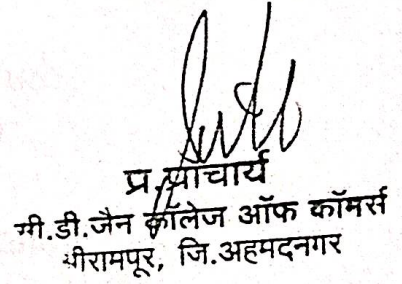 प्र.प्राचार्य
सी.डी.जैन कॉलेज ऑफ कॉमर्स
श्रीरामपूर, जि.अहमदनगर